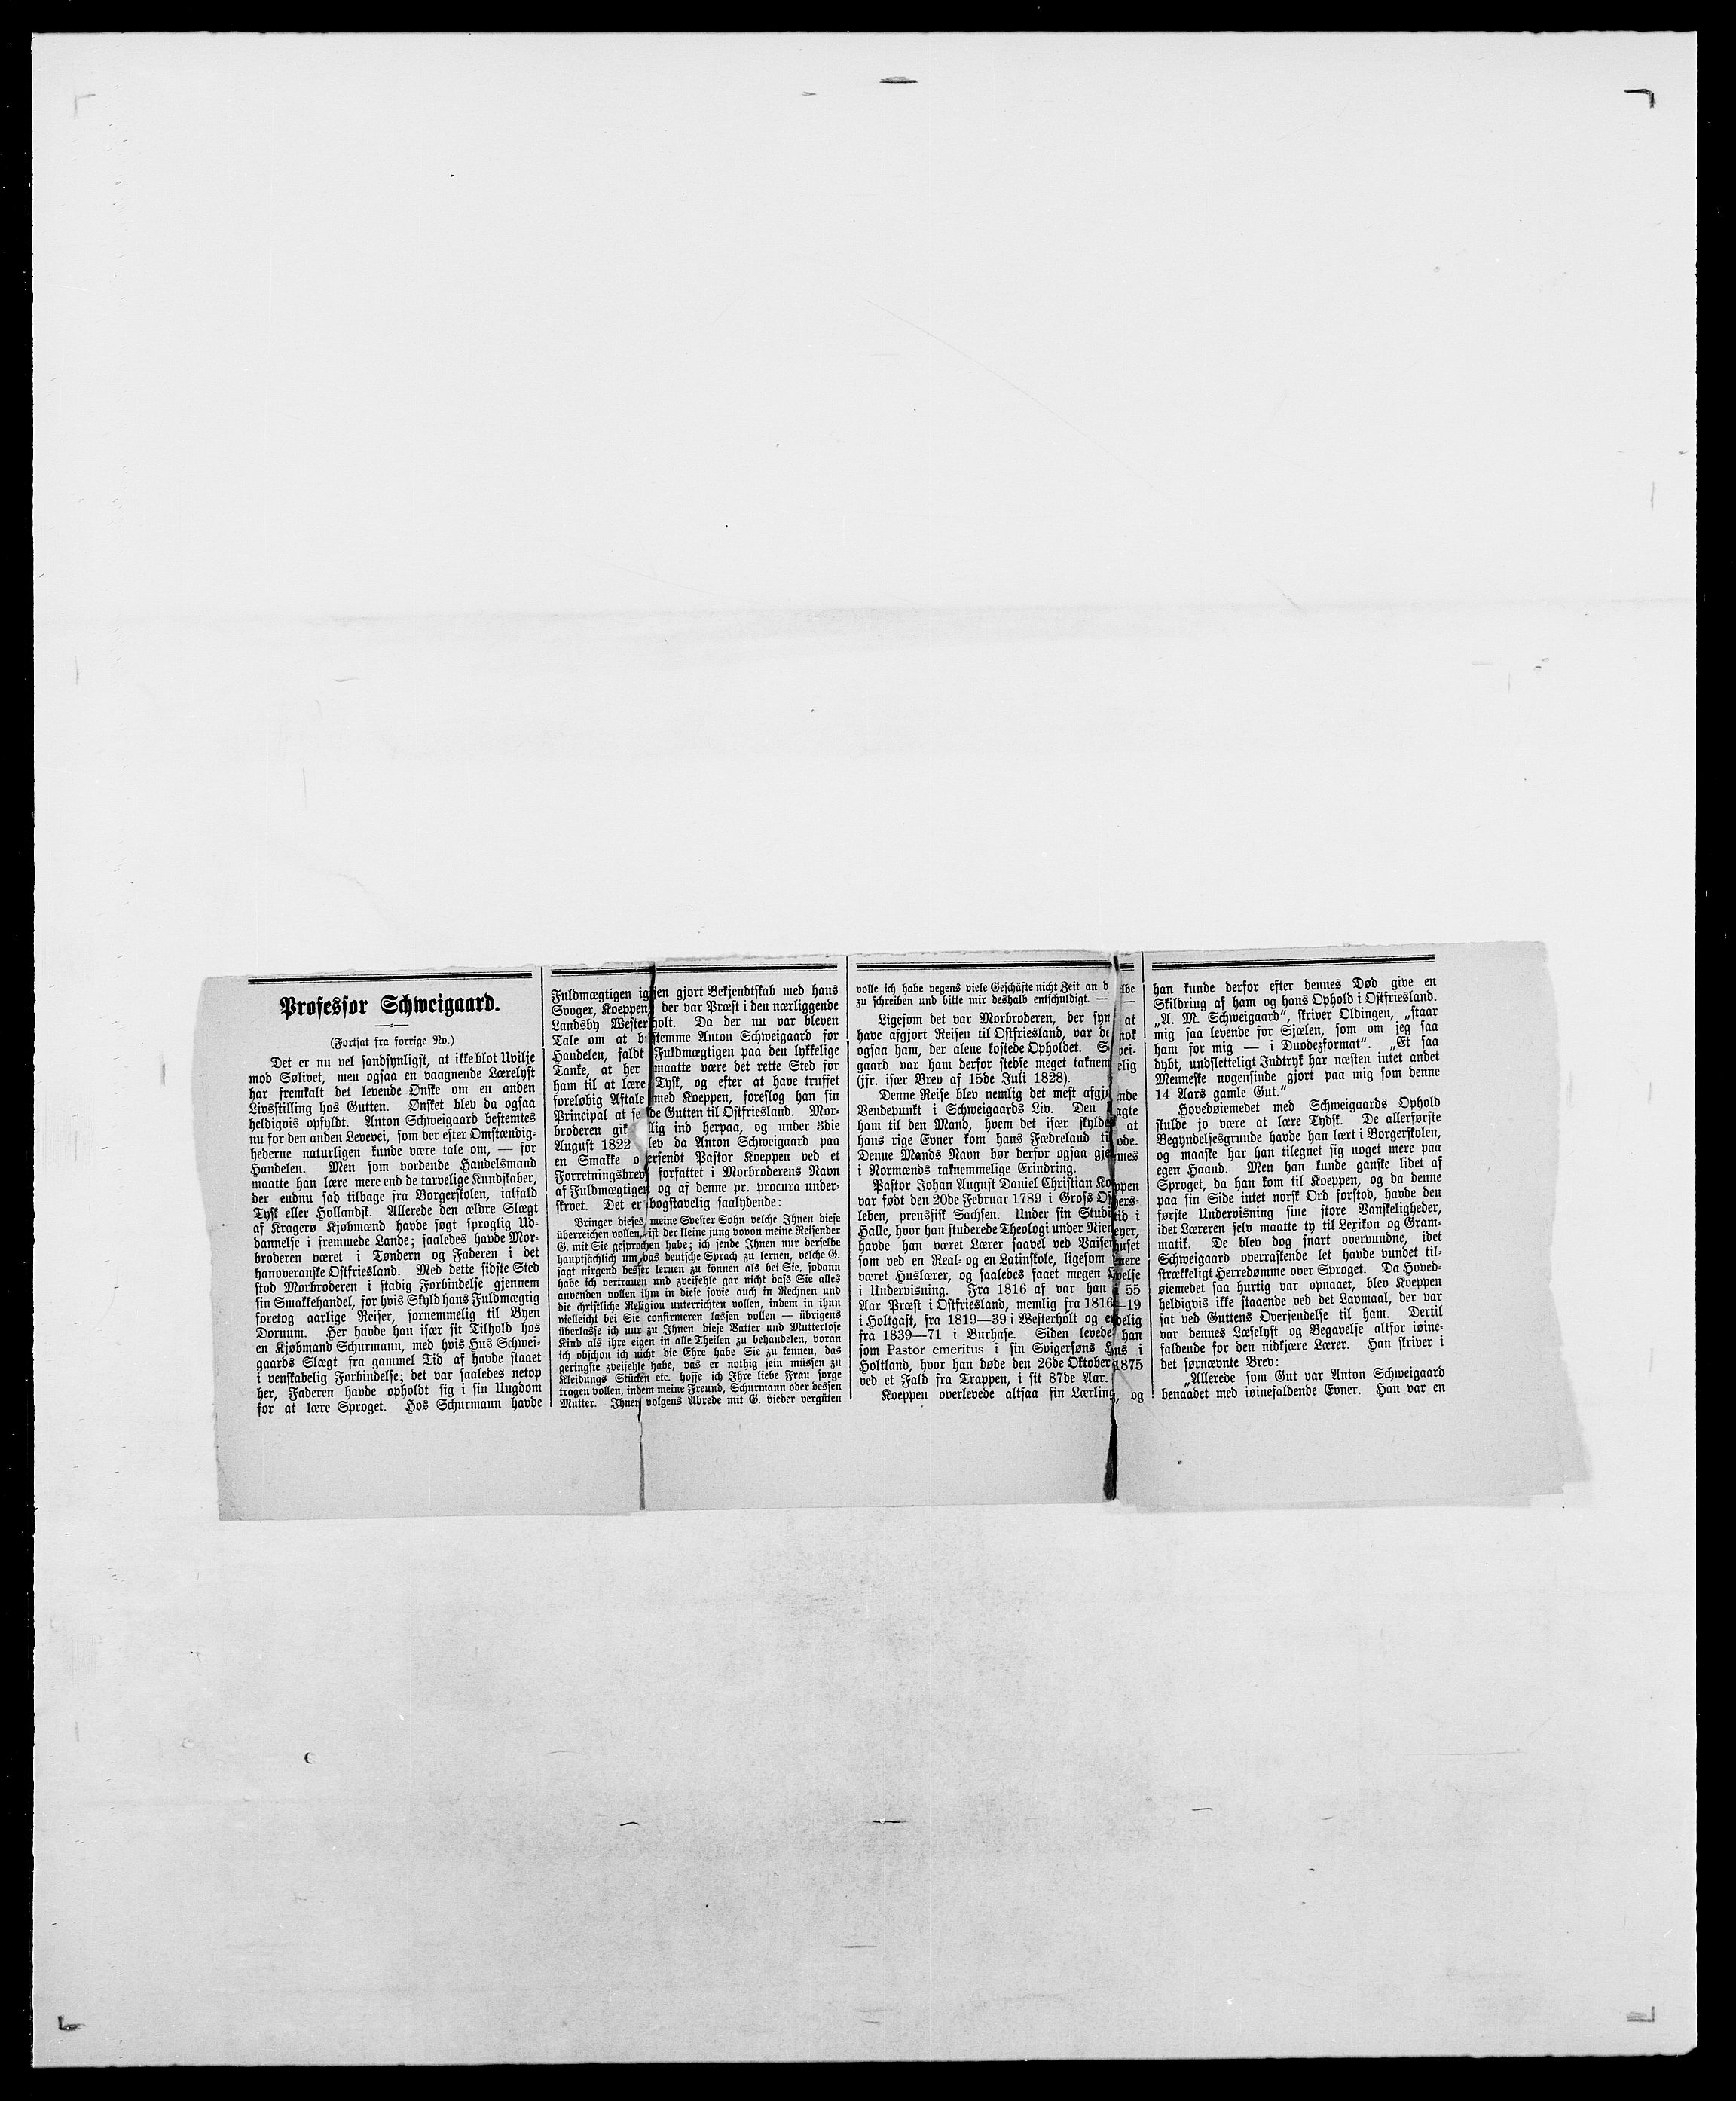 Professor Schweigaard.
(Fortsat fra forrige No.)
Det er nu vel sandsynligst, at ikke blot Uvilje
mod Sølivet, men ogsaa en vaagnende Lærelyst
har fremkalt det levende Ønske om en anden
Livsstilling hos Gutten. Ønsket blev da ogsaa
heldigvis opfyldt. Anton Schweigaard bestemtes
nu for den anden Levevei, som der efter Omstændig-
hederne naturligen kunde være tale om, — for
Handelen. Men som vordende Handelsmand
maatte han lære mere end de tarvelige Kundskaber,
der endnu sad tilbage fra Borgerskolen, ialfald
Tysk eller Hollandsk. Allerede den ældre Slægt
af Kragerø Kjøbmænd havde søgt sproglig Ud-
dannelse i fremmede Lande; saaledes havde Mor-
broderen været i Tøndern og Faderen i det
hanoveranske Ostfriesland. Med dette sidste Sted
stod Morbroderen i stadig Forbindelse gjennem
sin Smakkehandel, for hvis Skyld hans Fuldmægtig
foretog aarlige Reiser, fornemmelig til Byen
Dornum. Her havde han især sit Tilhold hos
en Kjøbmand Schurmann, med hvis Hus Schwei-
gaards Slægt fra gammel Tid af havde staaet
i venskabelig Forbindelse; det var saaledes netop
her, Faderen havde opholdt sig i sin Ungdom
for at lære Sproget. Hos Schurmann havde
Fuldmægtigen igjen gjort Bekjendtskab med hans
Svoger, Koeppen, der var Præst i den nærliggende
Landsby Westerholt. Da der nu var bleven
Tale om at bestemme Anton Schweigaard for
Handelen, faldt Fuldmægtigen paa den lykkelige
Tanke, at her maatte være det rette Sted for
ham til at lære Tysk, og efter at have truffet
foreløbig Aftale med Koeppen, foreslog han sin
Principal at sende Gutten til Ostfriesland. Mor-
broderen gik lig ind herpaa, og under 3die
August 1822 blev da Anton Schweigaard paa
en Smakke oversendt Pastor Koeppen ved et
Forretningsbrev, forfattet i Morbroderens Navn
af Fuldmægtigen og af denne pr. procura under-
skrvet. Det er bogstavelig saalydende:
Bringer dieses meine Svester Sohn velche Ihnen diese
überreichen vollen, ist der kleine jung vovon meine Reisender
G. mit Sie gesprochen habe; ich sende Ihnen nur derselbe
hauptsächlich um das deutsche Sprach zu lernen, velche G.
sagt nirgend besser lernen zu können als bei Sie, sodann
habe ich vertrauen und zveifehle gar nicht dass Sie alles
anvenden vollen ihm in diese sovie auch in Rechnen und
die christliche Religion unterrichten vollen, indem in ihnn
vielleicht bei Sie confirmeren lassen vollen — übrigens
überlasse ich nur zu Ihnen diese Vatter und Mutterlose
Kind als ihre eigen in alle Theilen zu behandelen, voran
ich obschon ich nicht die Ehre habe Sie zu kennen, das
geringste zveifehle habe, vas er nothig sein müssen zu
Kleidungs Stücken etc. hoffe ich Ihre liebe Frau sorge
tragen vollen, indem meine Freund, Schurmann oder dessen
Mutter. Ihnen volgens Abrede mit G. vieder vergüten
volle ich habe vegens viele Geschäfte nicht Zeit an d lbe
zu schreiben und bitte mir deshalb entschuldigt. — —
Ligesom det var Morbroderen, der syn at
have afgjort Reisen til Ostfriesland, var de nok
ogsaa ham, der alene kostede Opholdet. Schwei-
gaard var ham derfor stedse meget taknemmelig
(jfr. især Brev af 15de Juli 1828).
Denne Reise blev nemlig det mest afgjørende
Vendepunkt i Schweigaards Liv. Den bragte
ham til den Mand, hvem det især skyldes at
hans rige Evner kom hans Fædreland tilgode.
Denne Mands Navn bør derfor ogsaa gjemmes
i Normænds taknemmelige Erindring.
Pastor Johan August Daniel Christian Koeppen
var født den 20de Februar 1789 i Gross Oschers-
leben, preussisk Sachsen. Under sin Studietid i
Halle, hvor han studerede Theologi under Niemeyer,
havde han været Lærer saavel ved Vaisenhuset
som ved en Real- og en Latinskole, ligesom senere
været Huslærer, og saaledes faaet megen Øvelse
i Undervisning. Fra 1816 af var han i 55
Aar Præst i Ostfriesland, nemlig fra 1816—19
i Holtgast, fra 1819—39 i Westerholt og endelig
fra 1839—71 i Burhafe. Siden levede han
som Pastor emeritus i sin Svigersøns Hus i
Holtland, hvor han døde den 26de Oktober 1875
ved et Fald fra Trappen, i sit 87de Aar.
Koeppen overlevede altsaa sin Lærling, og
han kunde derfor efter dennes Død give en
Skildring af ham og hans Ophold i Ostfriesland.
„A. M. Schweigaard“, skriver Oldingen, „staar
mig saa levende for Sjælen, som om jeg saa
ham for mig — i Duodezformat“. „Et saa
dybt, uudsletteligt Indtryk har næsten intet andet
Menneske nogensinde gjort paa mig som denne
14 Aars gamle Gut.“
Hovedøiemedet med Schweigaards Ophold
skulde jo være at lære Tydsk. De allerførste
Begyndelsesgrunde havde han lært i Borgerskolen,
og maaske har han tilegnet sig noget mere paa
egen Haand. Men han kunde ganske lidet af
Sproget, da han kom til Koeppen, og da denne
paa sin Side intet norsk Ord forstod, havde den
første Undervisning sine store Vanskeligheder,
idet Læreren selv maatte ty til Lexikon og Gram-
matik. De blev dog snart overvundne, idet
Schweigaard overraskende let havde vundet til-
strækkeligt Herredømme over Sproget. Da Hoved-
øiemedet saa hurtig var opnaaet, blev Koeppen
heldigvis ikke staaende ved det Lavmaal, der var
sat ved Guttens Oversendelse til ham. Dertil
var dennes Læselyst og Begavelse altfor iøine-
faldende for den nidkjære Lærer. Han skriver i
det førnævnte Brev:
„Allerede som Gut var Anton Schweigaard
benaadet med iøinefaldende Evner. Han var en